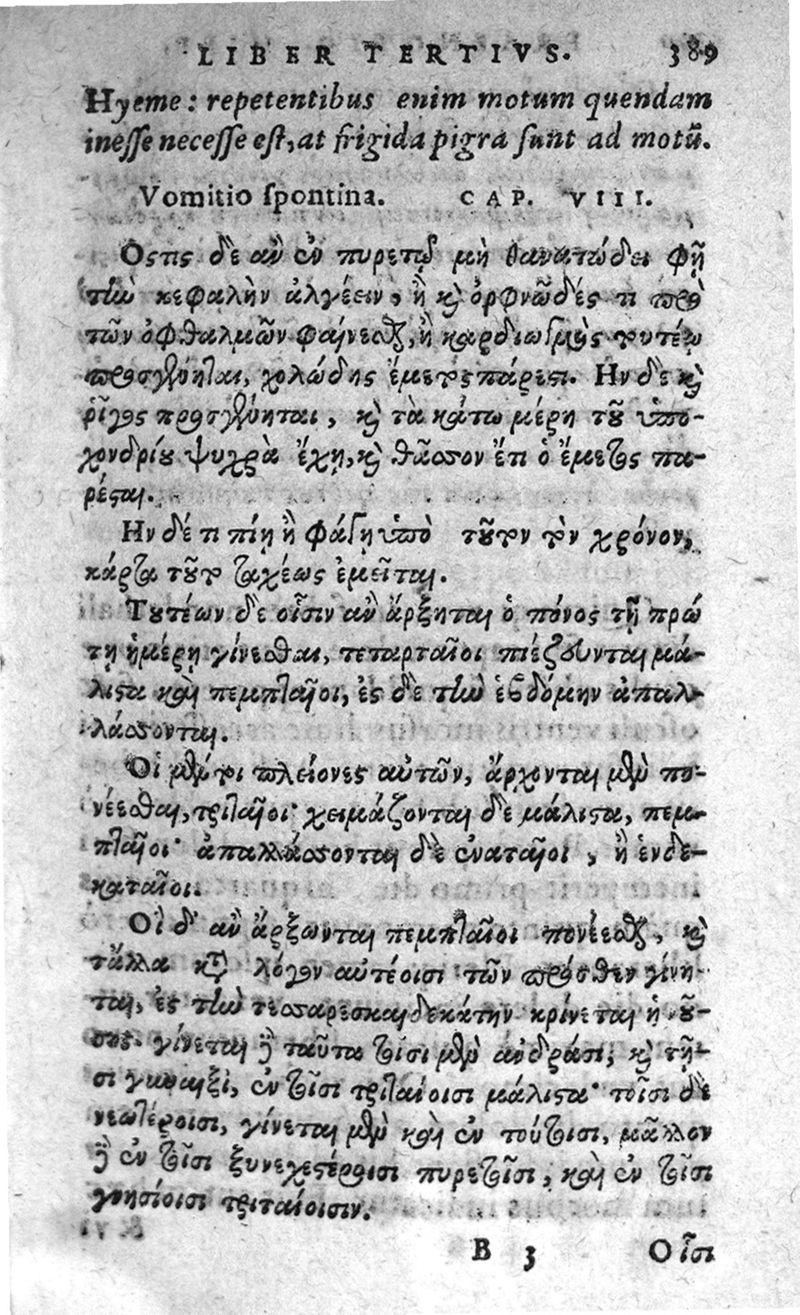 LIBER TERTIVS. 389
Hyeme: repetentibus enim motum quendam
inesse necesse est, at frigida pigra sunt ad motũ.
Vomitio spontina. CAP. VIII.
Ὅστις δὲ ἂν ἐν πυρετῷ μὴ θανατώδει φῇ
τὴν κεφαλὴν ἀλγέειν, ἢ καὶ ὀρφνῶδές τι πρὸ
τῶν ὀφθαλμῶν φαίνεσθαι, ἢ καρδιωγμὸς τουτέῳ
προσγένηται, χολώδης ἔμετος πάρεστι. Ην δὲ καὶ
ῥῖγος προσγένηται, καὶ τὰ κάτω μέρη τοῦ ὑπο-
χονδρίου ψυχρὰ ἔχῃ, καὶ θᾶσσον ἔτι ὁ ἔμετος πα-
ρέσται.
Ην δέ τι πίῃ ἢ φάγῃ ὑπὸ τοῦτον τὸν χρόνον,
κάρτα τοῦτο ταχέως ἐμεῖται.
Τουτέων δὲ οἷσιν ἂν ἄρξηται ὁ πόνος τῇ πρώ
τῃ ἡμέρῃ γίνεσθαι, τεταρταῖοι πιέζουνται μά-
λιστα καὶ πεμπταῖοι, ἐς δὲ τὴν ἑβδόμην ἀπαλ-
λάσσονται.
Οἱ μέντοι πλείονες αὐτῶν, ἄρχονται μὲν πο-
νέεσθαι, τριταῖοι· χειμάζονται δὲ μάλιστα, πεμ-
πταῖοι· ἀπαλλάσσονται δὲ ἐναταῖοι, ἢ ἑνδε-
καταῖοι.
Οἳ δ' ἂν ἄρξωνται πεμπταῖοι πονέεσθαι, καὶ
τἄλλα κατὰ λόγον αὐτέοισι τῶν πρόσθεν γίνη-
ται, ἐς τὴν τεσσαρεσκαιδεκάτην κρίνεται ἡ νοῦ-
σος. γίνεται δὲ ταῦτα τοῖσι μὲν ἀνδράσι, καὶ τῇ-
σι γυναιξὶ, ἐν τοῖσι τριταίοισι μάλιστα· τοῖσι δὲ
νεωτέροισι, γίνεται μὲν καὶ ἐν τούτοισι, μᾶλλον
δὲ ἐν τοῖσι ξυνεχεστέροισι πυρετοῖσι, καὶ ἐν τοῖσι
γνησίοισι τριταίοισιν.
B 3 Οἷσι